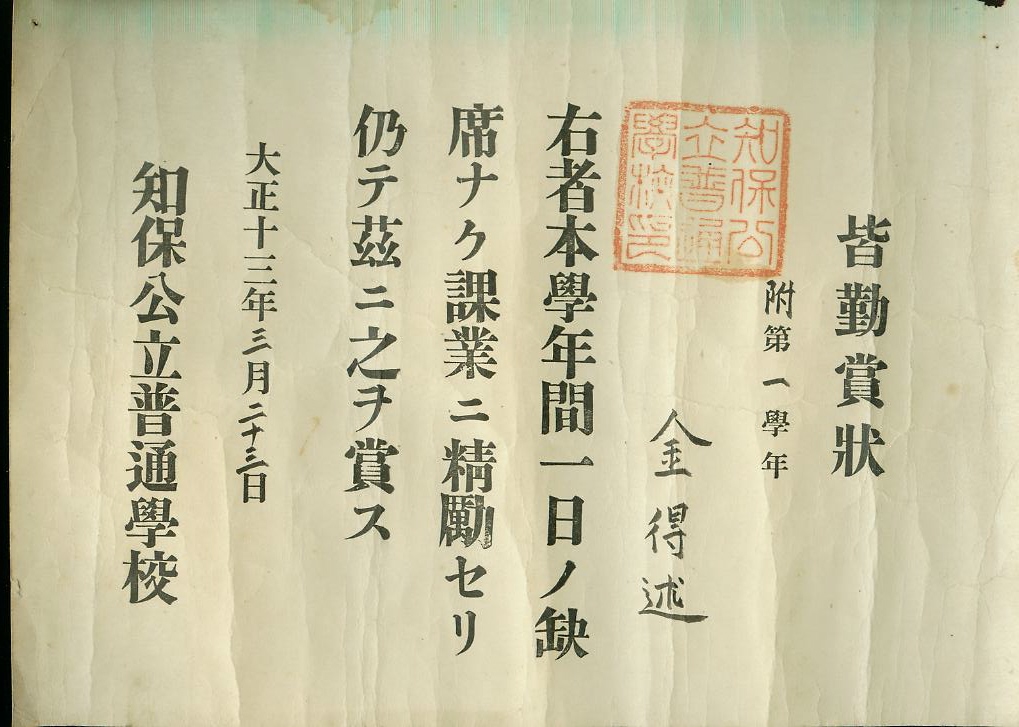 皆勤賞狀
附第一學年
金得述
知保公
立普通
學校印
右者本學年間一日ノ缺
席ナク課業ニ精勵セリ
仍テ茲ニ之ヲ賞ス
大正十三年三月二十三日
知保公立普通學校